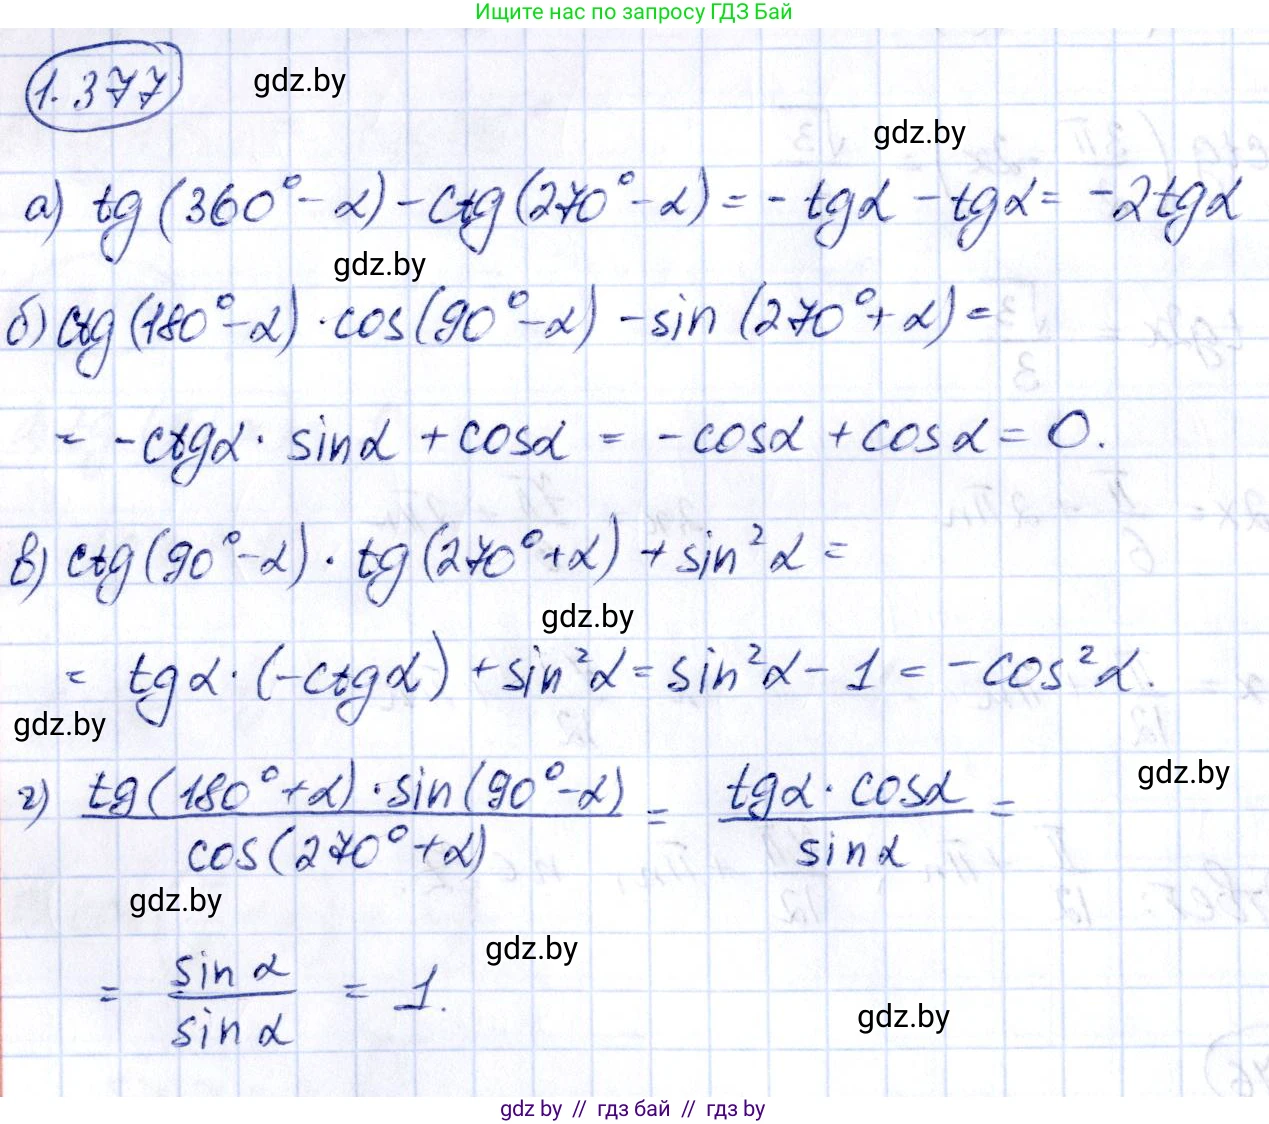 Ищите нас по запросу ГДЗ Бай
1.377
gdz.by
gdz.by
а) tg(360°-α) - ctg(270°-α) = - tgα - tgα = -2tgα
gdz.by
б) ctg(180°-α) · cos(90°-α) - sin (270°+α) =
= -ctgα · sinα + cosα = -cosα + cosα = 0.
в) ctg(90°-α) · tg(270°+α) + sin²α =
gdz.by
= tgα · (-ctgα) + sin²α = sin²α - 1 = -cos²α.
gdz.by
gdz.by
г) tg(180°+α) · sin(90°-α) / cos(270°+α) = tgα · cosα / sinα =
gdz.by
gdz.by
= sin α / sin α = 1.
gdz.by
gdz by // гдз бай // гдз by